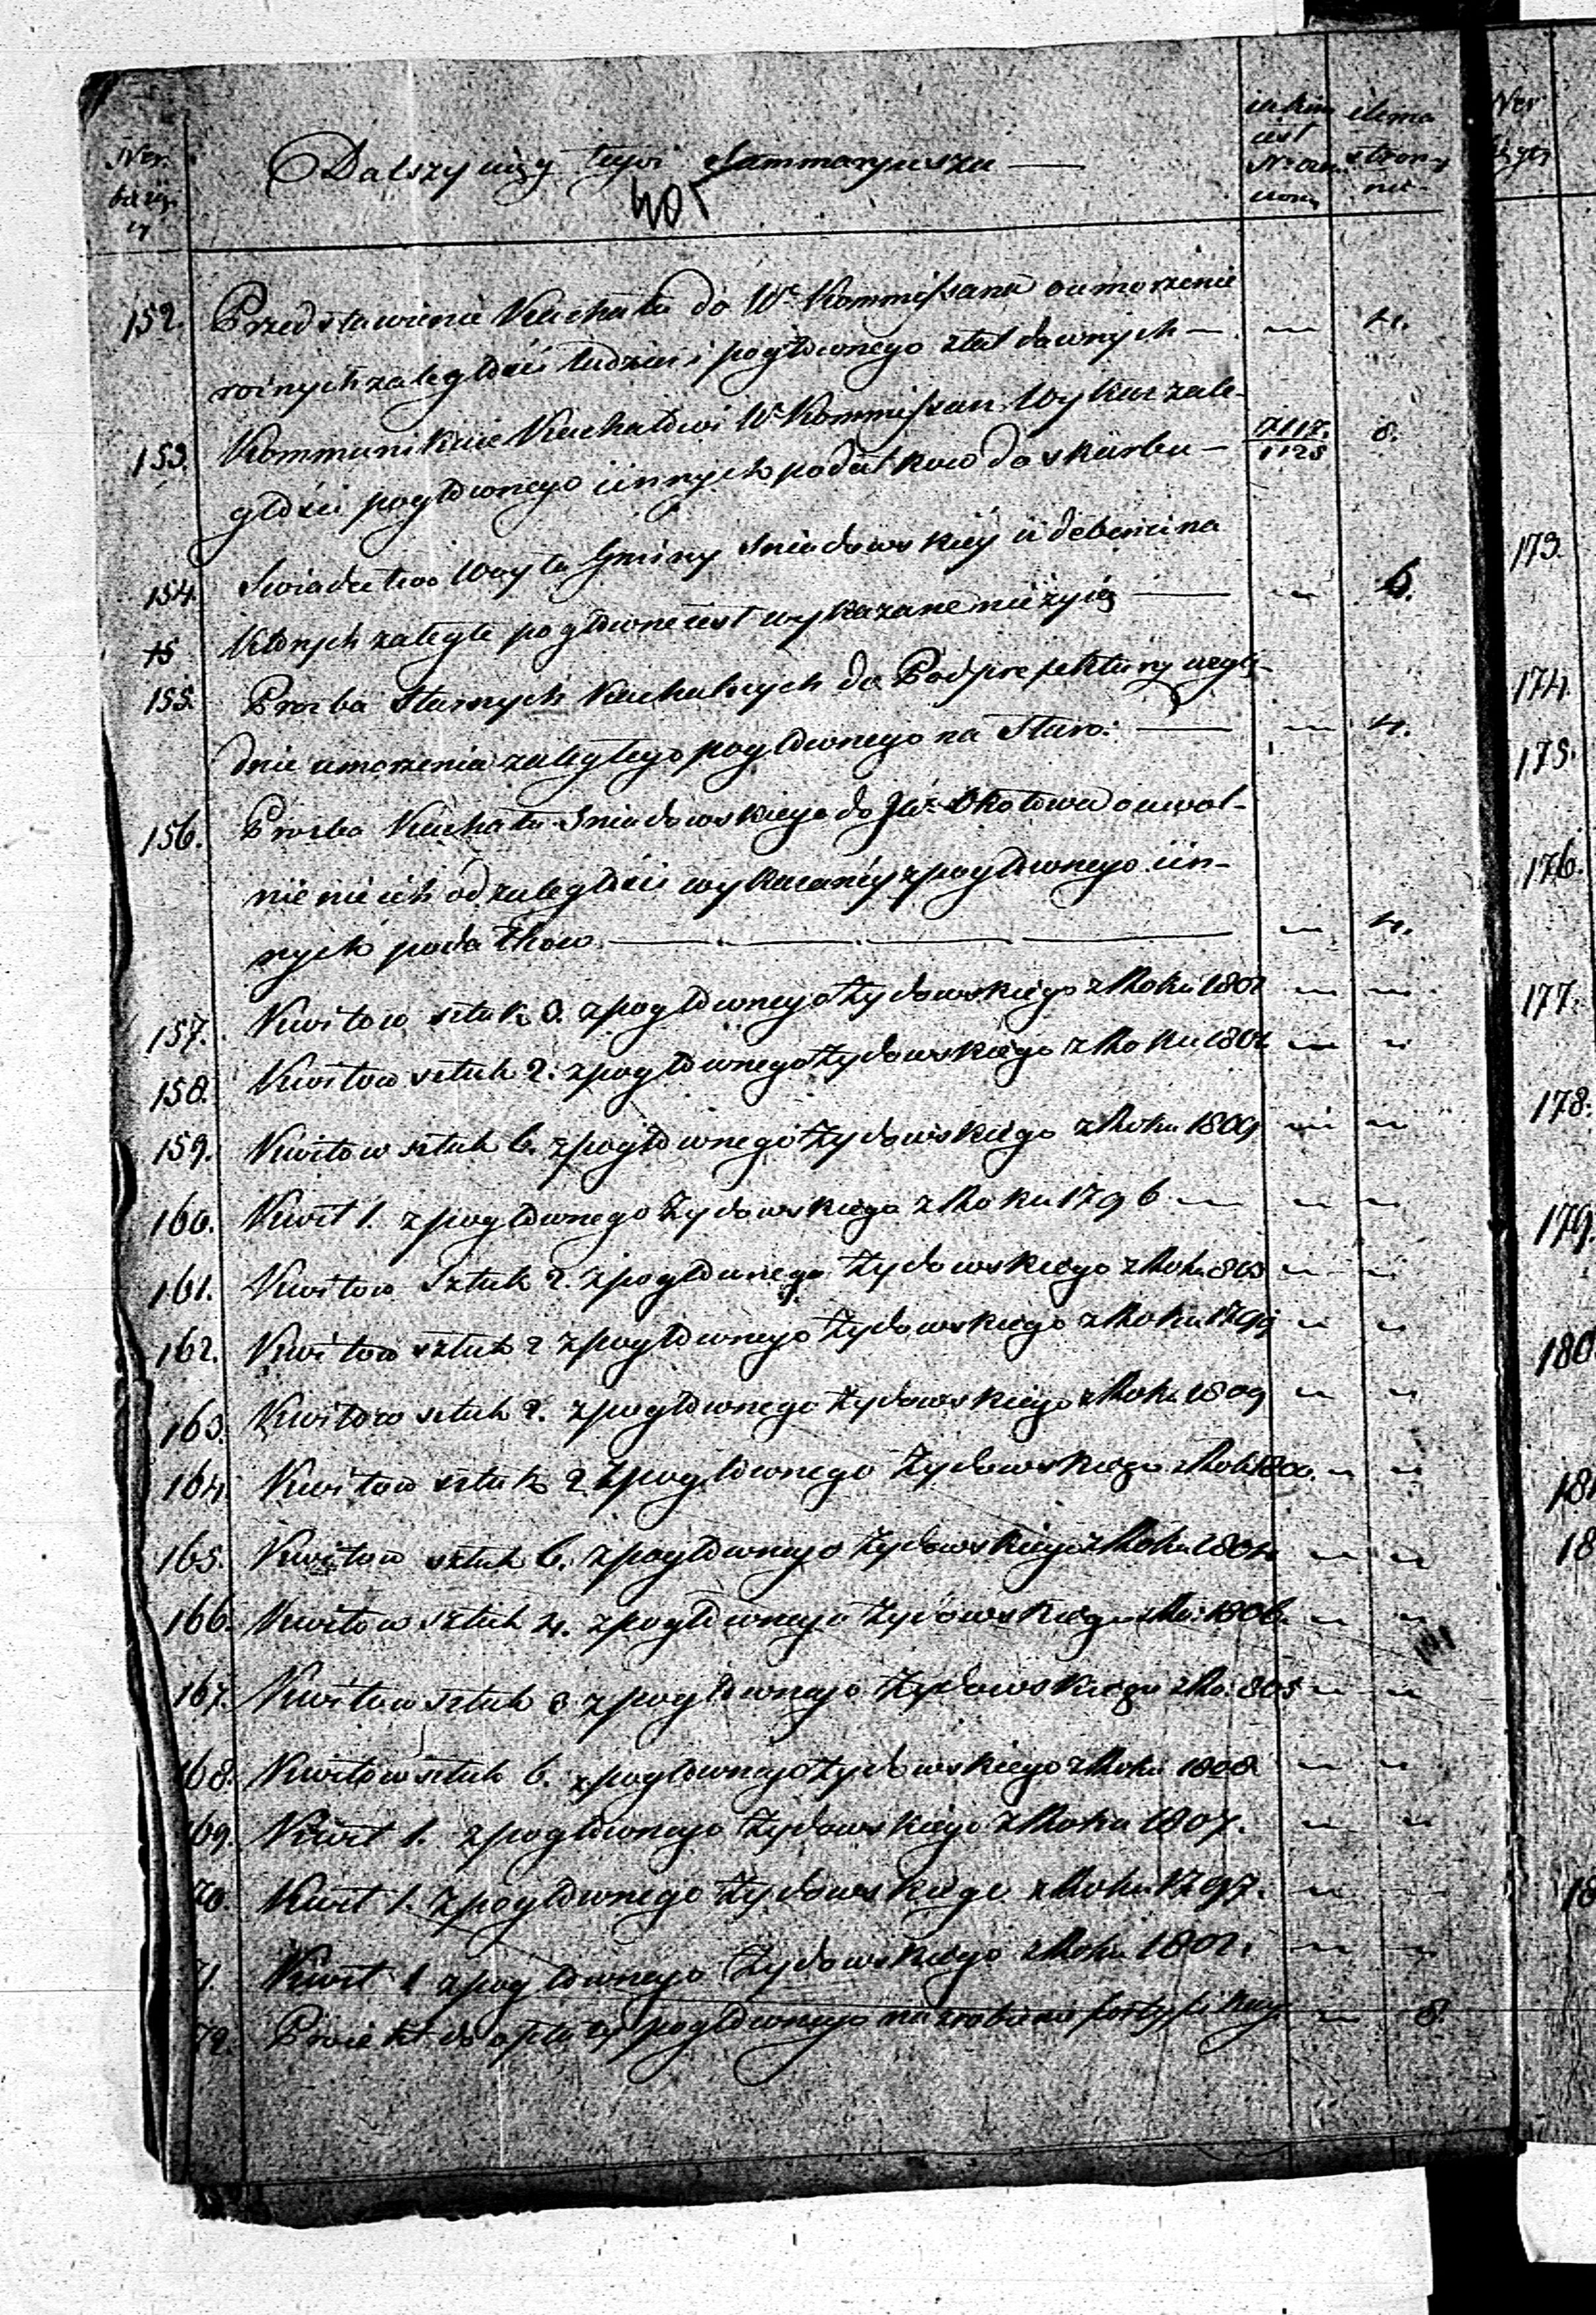 Ner
bieżą-
cy
Dalszy ciąg tegoż Summaryuszu —
405
iakim
iest
Nrem
stron
Ner
152. Przedstawienie Kachału do W° Kommissarza o umorzenie
rożnych zaległości tudzież i pogłownego z lat dawnych — — 4.
153. Kommunikuie Kachałowi W. Kommissarz Wykaz zale-
głości pogłownego i innych podatkow do skarbu — 7117. 8.
1125
154. Swiadectwo Woyta Gminy Sniadowskiey iż debenci na
15 ktorych zaległe pogłowne iest wykazane nie żyią — — 6.
155. Prozba Starszych Kachalnych do Podprefektury wzglę-
dnie umorzenia zaległego pogłownego na Staro: — — 4.
156. Prozba Kachału Sniadowskiego do o uwol-
nienie ich od zaległości wykazaney z pogłownego i in-
nych podatkow — — 4.
157. Kwitow sztuk 3. z pogłownego Żydowskiego z Roku 1802 — —
158. Kwitow sztuk 2. z pogłownego Żydowskiego z Roku — —
159. Kwitow sztuk 6. z pogłownego Żydowskiego z Roku 1809 — —
160. Kwit 1. z pogłownego Żydowskiego z Roku 1796 — — —
161. Kwitow Sztuk 2. z pogłownego Żydowskiego z Roku — —
162. Kwitow sztuk 2 z pogłownego Żydowskiego z Roku 1799 — —
163. Kwitow sztuk 2. z pogłownego Żydowskiego z Roku 1809 — —
164. Kwitow sztuk 2 z pogłownego Żydowskiego z Roku 1800. — —
165. Kwitow sztuk 6. z pogłownego Żydowskiego z Roku 1804 — —
166. Kwitow Sztuk 4. z pogłownego Żydowskiego z Ro: 1806. — —
167. Kwitow Sztuk 3 z pogłownego Żydowskiego z Ro. 805 — —
168. Kwitow sztuk 6. z pogłownego Żydowskiego z Roku 1808 — —
169. Kwit 1. z pogłownego Żydowskiego z Roku 1807. — —
70. Kwit 1. z pogłownego Żydowskiego z Roku 1797. — —
71. Kwit 1 z pogłownego Żydowskiego z Roku 1802. — —
72. Proiekt do opłaty pogłownego na zrobienie fortyfikacyi — 8.
173.
174.
175.
176.
177.
178.
179.
180
181
18
18